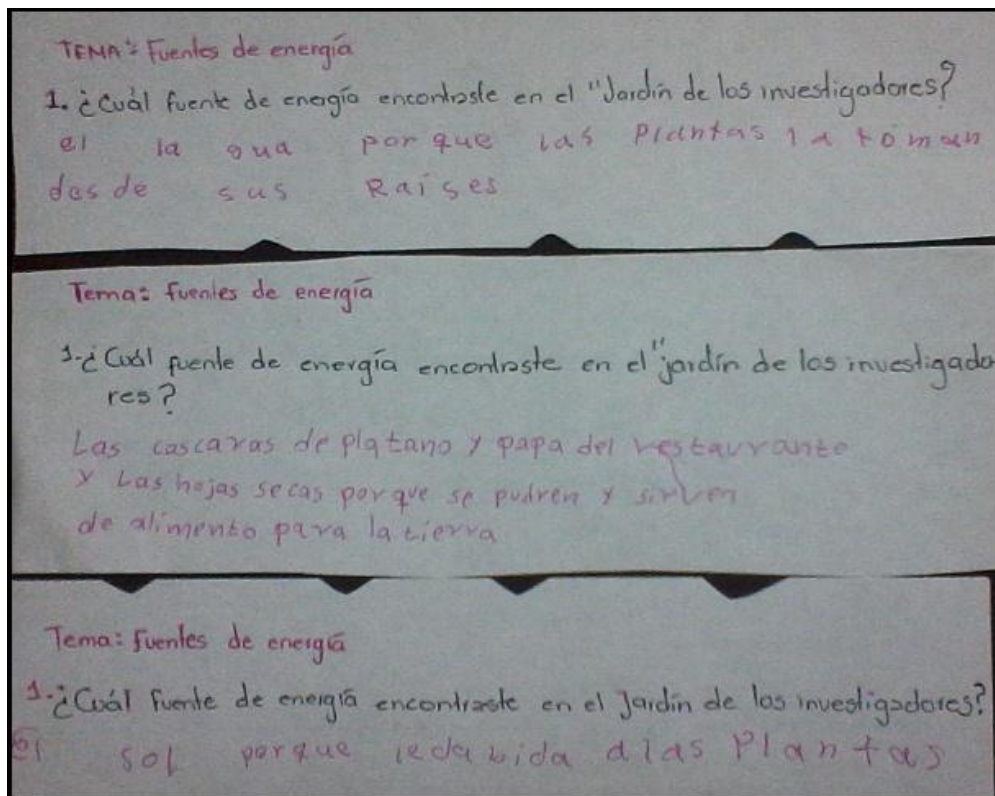 TEMA: Fuentes de energía
1. ¿Cuál fuente de energía encontraste en el "Jardín de los investigadores?
el la gua por que las Plantas la toman
desde sus Raises
Tema: fuentes de energía
1-¿Cuál fuente de energía encontraste en el "jardín de los investigado
res?
Las cascaras de platano y papa del restaurante
y Las hojas secas porque se pudren y sirven
de alimento para la tierra
Tema: fuentes de energía
1.¿Cuál fuente de energía encontraste en el Jardín de los investigadores?
El sol porque leda bida alas Plantas